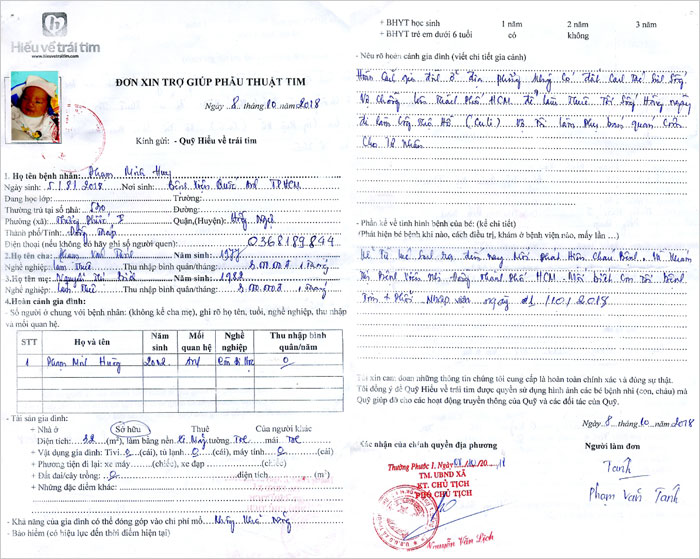 Hiểu về trái tim
www.hieuvetraitim.com
ĐƠN XIN TRỢ GIÚP PHẪU THUẬT TIM
Ngày 8 tháng 10 năm 2018
Kính gửi: - Quỹ Hiểu về trái tim
1. Họ tên bệnh nhân: Phạm Minh Huy
Ngày sinh: 5/8/2018 Nơi sinh: Bệnh Viện Quốc Ánh TPHCM
Đang học lớp: Trường:
Thường trú tại số nhà: 530 Đường:
Phường (xã): Thường Phước I Quận,(Huyện): Hồng Ngự
Thành phố/Tỉnh: Đồng Tháp
Điện thoại (nếu không có hãy ghi số người quen): 0368189894
2.Họ tên cha: Phạm Văn Tanh Năm sinh: 1977
Nghề nghiệp: Làm Thuê Thu nhập bình quân/tháng: 5.000.000 1 tháng
3.Họ tên mẹ: Năm sinh: 1982
Nghề nghiệp: Làm Thuê Thu nhập bình quân/tháng: 3.000.000 1 tháng
4.Hoàn cảnh gia đình:
- Số người ở chung với bệnh nhân: (không kể cha mẹ), ghi rõ họ tên, tuổi, nghề nghiệp, thu nhập
và mối quan hệ.
STT Họ và tên Năm sinh Mối quan hệ Nghề nghiệp Thu nhập bình quân/năm
1 Phạm Anh Còn đi học 0
- Tài sản gia đình:
+ Nhà ở Sở hữu Thuê Của người khác
Diện tích: (m²), làm bằng nền tường Tole mái Tole
+ Vật dụng gia đình: Tivi 0 (cái), tủ lạnh 0 (cái), máy tính 0 (cái)
+ Phương tiện đi lại: xe máy (chiếc), xe đạp (chiếc)
+ Đất đai/cây trồng: 0 diện tích (m²)
+ Những đặc điểm khác:
- Khả năng của gia đình có thể đóng góp vào chi phí mổ
- Bảo hiểm (có hiệu lực đến thời điểm hiện tại)
+ BHYT học sinh 1 năm 2 năm 3 năm
+ BHYT trẻ em dưới 6 tuổi có không
- Nêu rõ hoàn cảnh gia đình (viết chi tiết gia cảnh)
Hoàn Cảnh gia đình ở địa phương không Có đất
Vợ Chồng lên Thành Phố HCM để làm Thuê
đi làm Vợ Thì làm Phụ bán quán Cơm
Cho Tư Nhân
- Phần kể về tình hình bệnh của bé: (kể chi tiết)
(Phát hiện bệnh khi nào, cách điều trị, khám ở bệnh viện nào, mấy lần ...)
Kể Từ đến nay Mới phát Hiện Cháu Bệnh Và Khám
Bệnh Viện Nhi Đồng Thành Phố HCM Mới biết Con Tôi Bệnh
Tim + Phổi Nhập viện ngày 1/10/2018
Tôi xin cam đoan những thông tin chúng tôi cung cấp là hoàn toàn chính xác và đúng sự thật.
Tôi đồng ý để Quỹ Hiểu về trái tim được quyền sử dụng hình ảnh các bé bệnh nhi (con, cháu) mà
Quỹ giúp đỡ cho các hoạt động truyền thông của Quỹ và các đối tác của Quỹ.
Ngày 8 tháng 10 năm 2018
Các nhận của chính quyền địa phương
Người làm đơn
Thường Phước 1, Ngày 20 18
TM. UBND XÃ
KT. CHỦ TỊCH
PHÓ CHỦ TỊCH
Nguyễn Văn Lịch
Tanh
Phạm Văn Tanh